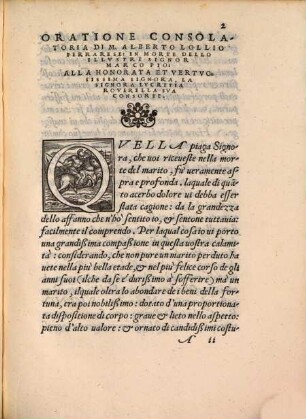 2
ORATIONE CONSOLA-
TORIA DI M. ALBERTO LOLLIO
FERRARESE; IN MORTE DELLO
ILLVSTRE SIGNOR
MARCO PIO:
ALLA HONORATA ET VERTVO-
SISSIMA SIGNORA, LA
SIGNORA LVCRETIA
ROVERELLA SVA
CONSORTE.
QVELLA piaga Signo-
ra, che uoi riceueste nella mor-
te del marito, fu ueramente as-
pra e profonda. laquale di quā-
to acerbo dolore ui debba esser
stata cagione: da la grandezza
dello affanno che n'hò sentito io, & sentone tuttauia:
facilmente il comprendo. Per laqual cosa io ui porto
una grandissima compassione in questa uostra calami-
tà: considerando, che non pure un marito perduto ha
uete nella più bella etade, & nel piu felice corso de gli
anni suoi (ilche da se è durissimo à sofferire) mà un
marito, ilquale oltra lo abondare de i beni della for-
tuna, era poi nobilissimo: dotato d'una proportiona-
ta dispositione di corpo: graue & lieto nello aspetto:
pieno d'alto ualore: & ornato di candidissimi costu-
A ii